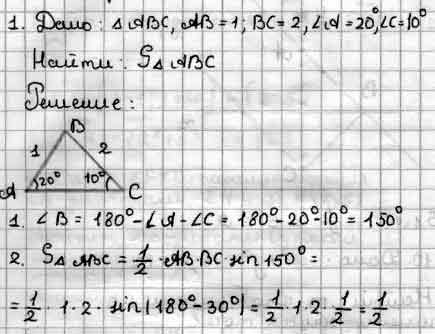 1. Дано: △ ABC, AB = 1; BC = 2, ∠A = 20°, ∠C = 10°
Найти: S△ ABC
Решение:
B
1 2
A 20° 10° C
1. ∠B = 180° - ∠A - ∠C = 180° - 20° - 10° = 150°
2. S△ ABC = 1/2 · AB · BC · sin 150° =
= 1/2 · 1 · 2 · sin(180° - 30°) = 1/2 · 1 · 2 · 1/2 = 1/2